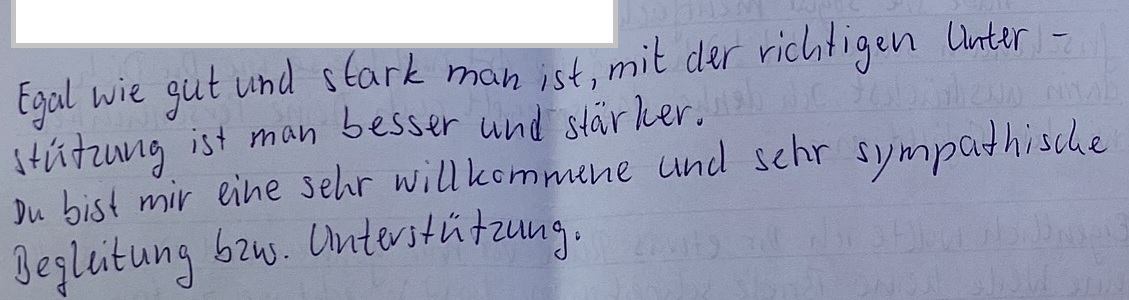 Egal wie gut und stark man ist, mit der richtigen Unter-
stützung ist man besser und stärker.
Du bist mir eine sehr willkommene und sehr sympathische
Begleitung bzw. Unterstützung.